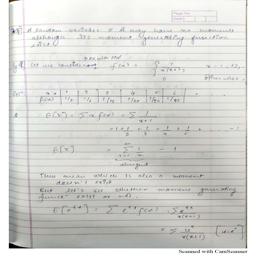 Page No.
Date
A random variable X may have no moments
although its moment generating function
exist.
Let us consider
f(x) = 1/x(x+1) x = 1, 2, ...
0 otherwise
x 1 2 3 4 5 6
f(x) 1/2 1/6 1/12 1/20 1/30
E(x) = Σ x f(x) = Σ 1/x+1
E(x) = Σ 1/x - 1
divergent
There mean which is also a moment
doesn't exist
But let's see whether moment generating
function exist or not.
E(e^tx) = Σ e^tx f(x) = Σ e^tx/x(x+1)
= Σ u^x/x(x+1) [u = e^t]
Scanned with CamScanner